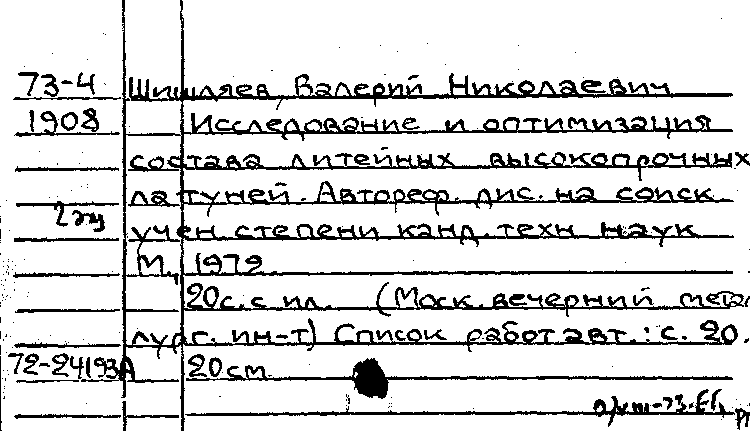 73-4 Шишляев, Валерий Николаевич
1908 Исследование и оптимизация
состава литейных высокопрочных
латуней. Автореф. дис. на соиск
2 экз учен степени канд. техн наук
М., 1972.
20с. с ил. (Моск. вечерний метал
лург. ин-т) Список работ авт.: с. 20.
72-24193А 20 см